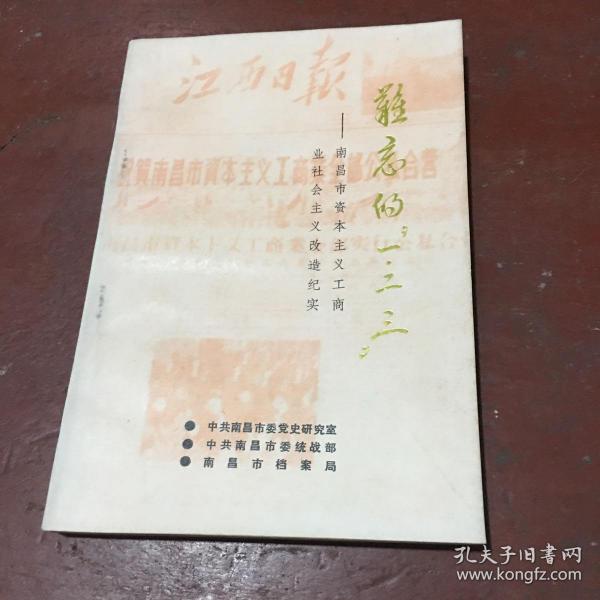 江西日報
難忘的“一·二三”
——南昌市资本主义工商
业社会主义改造纪实
賀南昌市資本主义工商業全部公私合营
南昌市資本主义工商業全部实行公私合营
● 中共南昌市委党史研究室
● 中共南昌市委统战部
● 南昌市档案局
孔夫子旧书网
www.kongfz.com